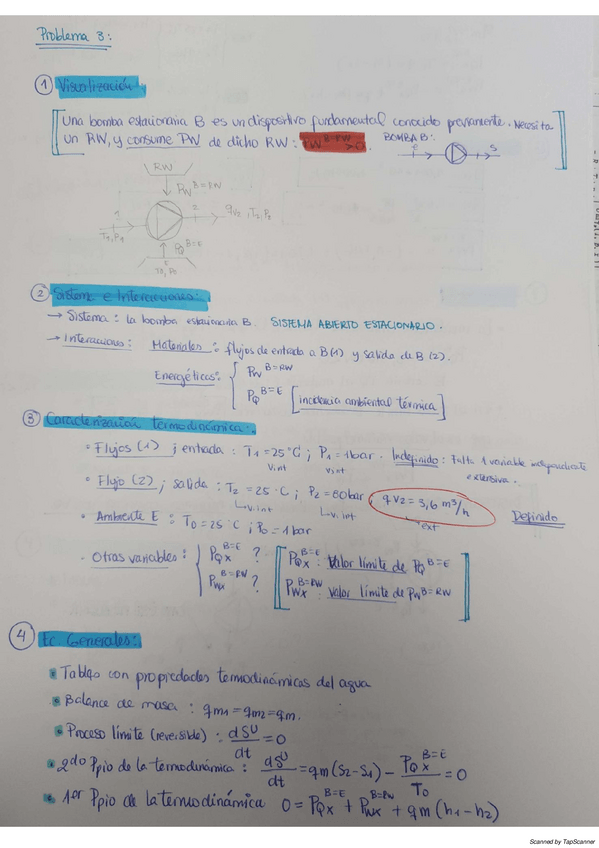 Problema 3:
① Visualización
Una bomba estacionaria B es un dispositivo fundamental conocido previamente. Necesita
un RW, y consume PW de dicho RW: PW^B=RW > 0. BOMBA B:
e s
RW
PW^B=RW
1 2 qv2, T2, P2
T1, P1
PQ^B=E
T0, P0
② Sistema e Interacciones:
→ Sistema: la bomba estacionaria B. SISTEMA ABIERTO ESTACIONARIO.
→ Interacciones: Materiales: flujos de entrada a B(1) y salida de B (2).
Energéticas: { PW^B=RW
PQ^B=E [incidencia ambiental térmica]
③ Caracterización termodinámica:
• Flujos (1); entrada: T1=25°C; P1=1bar. Indefinido: Falta 1 variable independiente
v.int v.int extensiva.
• Flujo (2); salida: T2=25°C; P2=80bar qv2=3,6 m³/h
v.int v.int ext Definido
• Ambiente E: T0=25°C; P0=1bar
• Otras variables: { PQx^B=E ? [ PQx^B=E: Valor límite de PQ^B=E
PWx^B=RW ? PWx^B=RW: valor límite de PW^B=RW ]
④ Ec. Generales:
• Tablas con propiedades termodinámicas del agua
• Balance de masa: qm1=qm2=qm.
• Proceso límite (reversible): dS^U/dt = 0
• 2do Ppio de la termodinámica: dS^U/dt = qm(s2-s1) - PQx^B=E/T0 = 0
• 1er Ppio de la termodinámica 0 = PQx^B=E + PWx^B=RW + qm (h1-h2)
Scanned by TapScanner